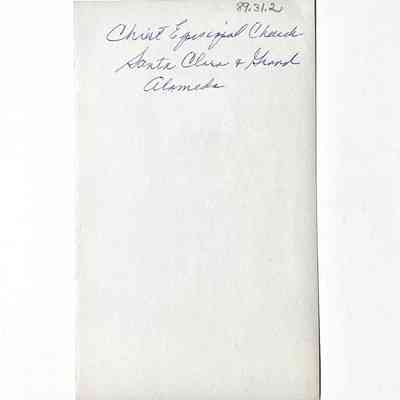 89.31.2
Christ Episcopal Church
Santa Clara & Grand
Alameda